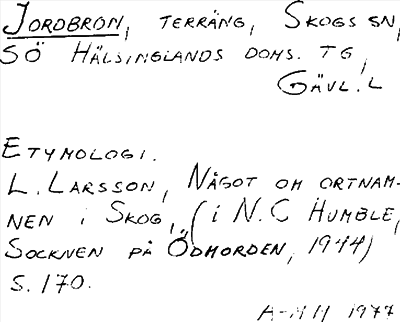 JORDBRON, TERRÄNG, SKOGS SN,
SÖ HÄLSINGLANDS DOMS. TG,
GÄVL. L
ETYMOLOGI.
L. LARSSON, NÅGOT OM ORTNAM-
NEN I SKOG, (I N.C HUMBLE,
SOCKNEN PÅ ÖDMORDEN, 1944)
S. 170.
1977